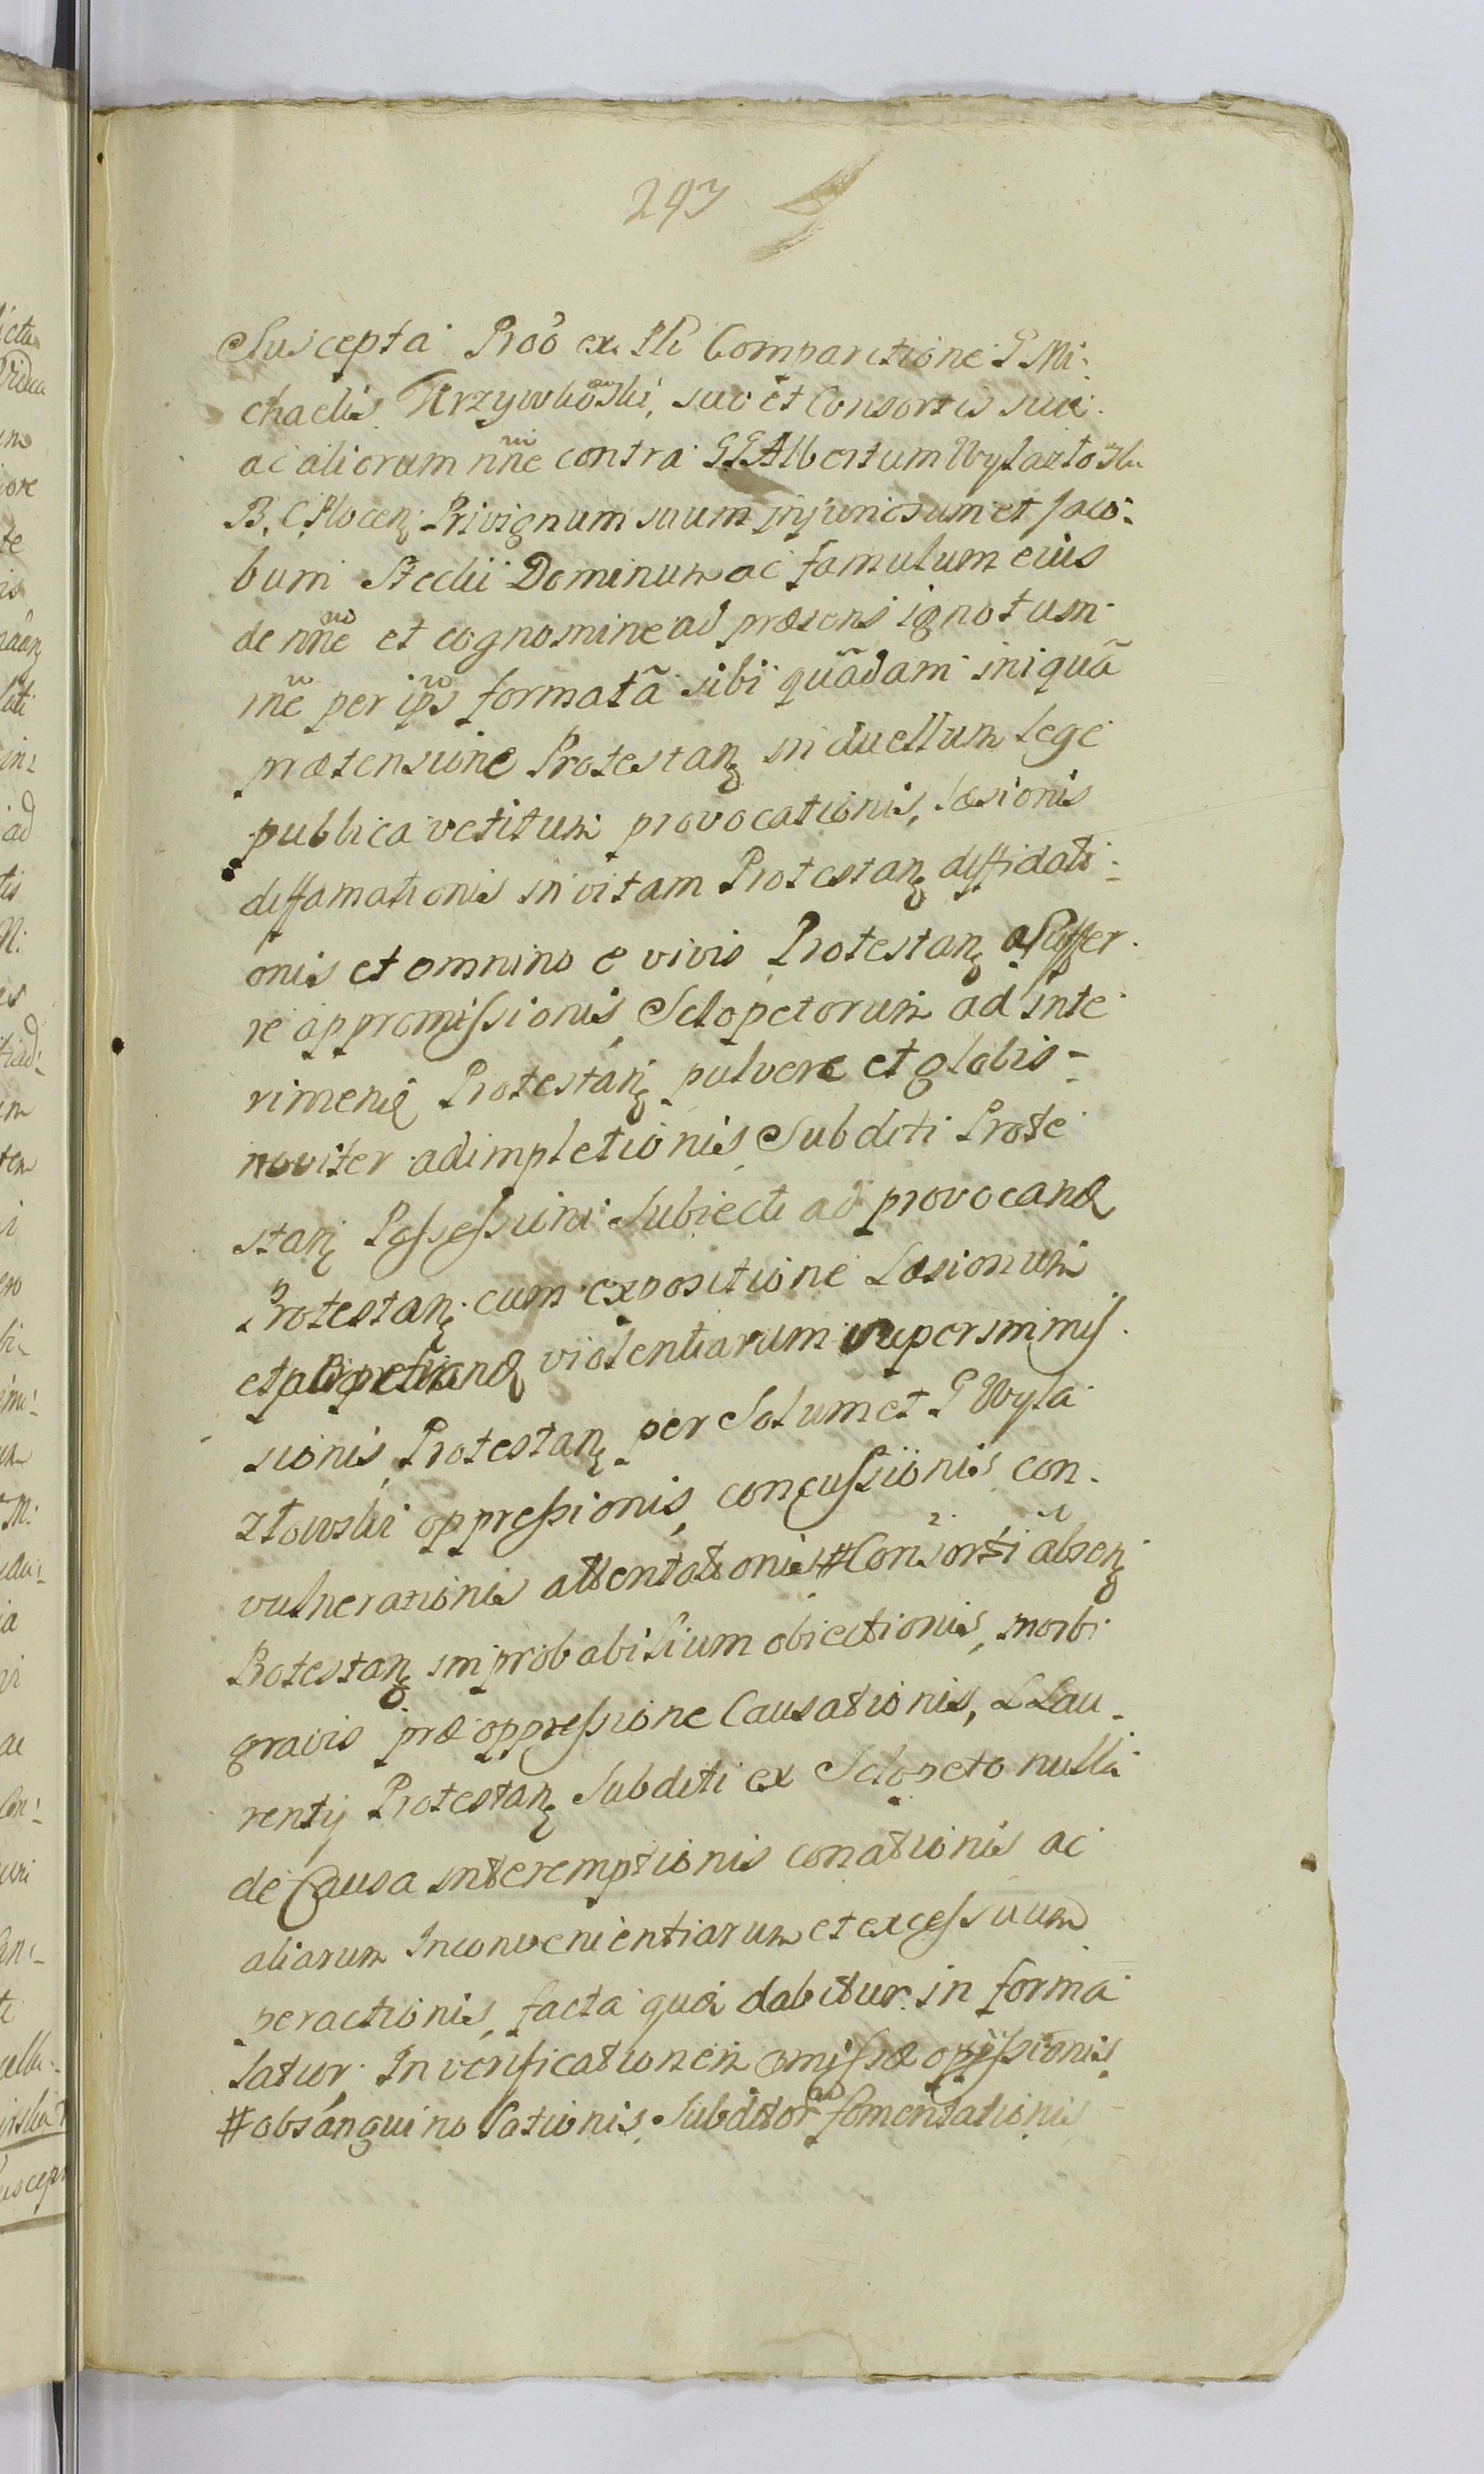 293
Suscepta Proõ ex Pli Comparitione G Mi:
chaelis Krzywkowski, suo et Consortis suæ
ac aliorum nñe contra GG Albertum Wylaztoski
B. C. Plocen. Privignum suum injuriosum et Jaco:
bum Stecki Dominum ac famulum eius
de nñe et cognomine ad præsens ignotum
rñe per ip̃s formatã sibi quãdam iniquã
prætensione Protestan. in duellum lege
publica vetitum provocationis, læsionis
diffamationis in vitam Protestan. diffidati:
onis et omnino e vivis Protestan. aufferr
re appromissionis, Sclopetorum ad inte
rimend Protestan. pulvere et globis
noviter adimpletionis, Subditi Prote
stan. Possessioni Subiecti ad provocand
Protestan. cum expositione Læsionum
et violentiarum superimmis
sionis, Protestan. per Solummet G Wyla
ztowski oppressionis, concussionis, con
vulnerationis attentationis # Consorti absen.
Protestan. improbabilium obiectionis, morbi
gravis præ oppressione Causationis, L Lau
rentij Protestan. Subditi ex Sclopeto nulla
de Causa interemptionis conationis ac
aliarum Inconvenientiarum et excessuum
peractionis, facta quæ dabitur in forma
latior. In verificationem omissæ
# obsanguinolationis, Subditor fomentationis